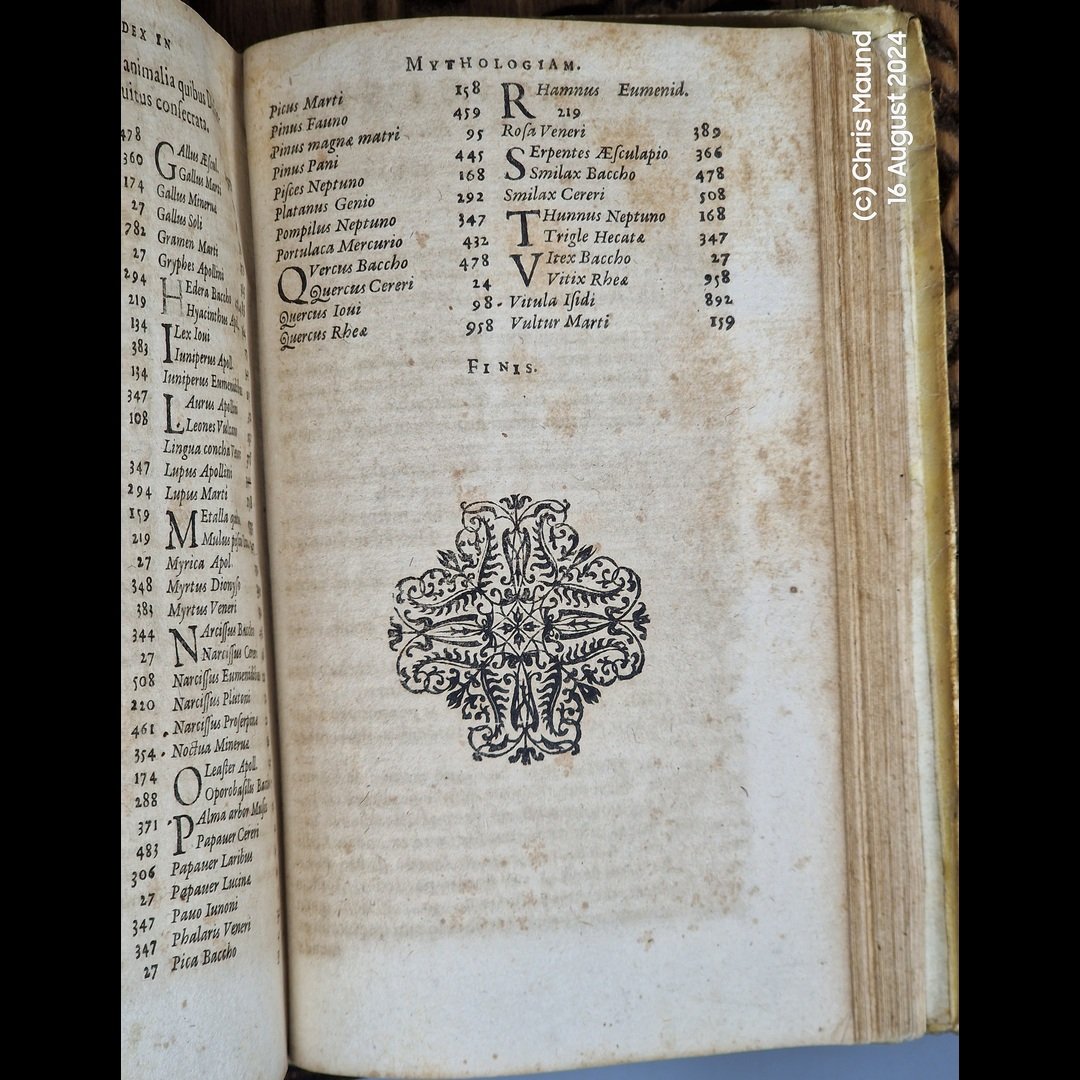 DEX IN
animalia quibus
uitus consecrata.
478
360
174
27
782
27
294
219
134
383
134
347
108
347
294
159
219
27
348
383
344
27
508
220
461
354
174
288
371
483
306
27
347
347
27
Gallus Æscul.
Gallus Marti
Gallus Mineruæ
Gallus Soli
Gramen Marti
Gryphes Apollini
Hedera Baccho
Hyacinthus
Ilex Ioui
Iuniperus Apoll.
Iuniperus
Laurus Apollini
Leones
Lingua
Lupus Apollini
Lupus Marti
Metalla
Mulus
Myrica Apol.
Myrtus Dionyso
Myrtus Veneri
Narcissus
Narcissus
Narcissus
Narcissus Plutoni
Narcissus
Noctua Mineruæ
Oleaster Apoll.
Palma arbor
Papauer Cereri
Papauer Laribus
Papauer Lucinæ
Pauo Iunoni
Phalaris Veneri
Pica Baccho
MYTHOLOGIAM.
Picus Marti 158
Pinus Fauno 459
Pinus magnæ matri 95
Pinus Pani 445
Pisces Neptuno 168
Platanus Genio 292
Pompilus Neptuno 347
Portulaca Mercurio 432
QVercus Baccho 478
Quercus Cereri 24
Quercus Ioui 98
Quercus Rheæ 958
RHamnus Eumenid.
219
Rosa Veneri 389
SErpentes Æsculapio 366
Smilax Baccho 478
Smilax Cereri 508
THunnus Neptuno 168
Trigle Hecatæ 347
VItex Baccho 27
Vitix Rheæ 958
Vitula Isidi 892
Vultur Marti 159
FINIS.
(c) Chris Maund
16 August 2024